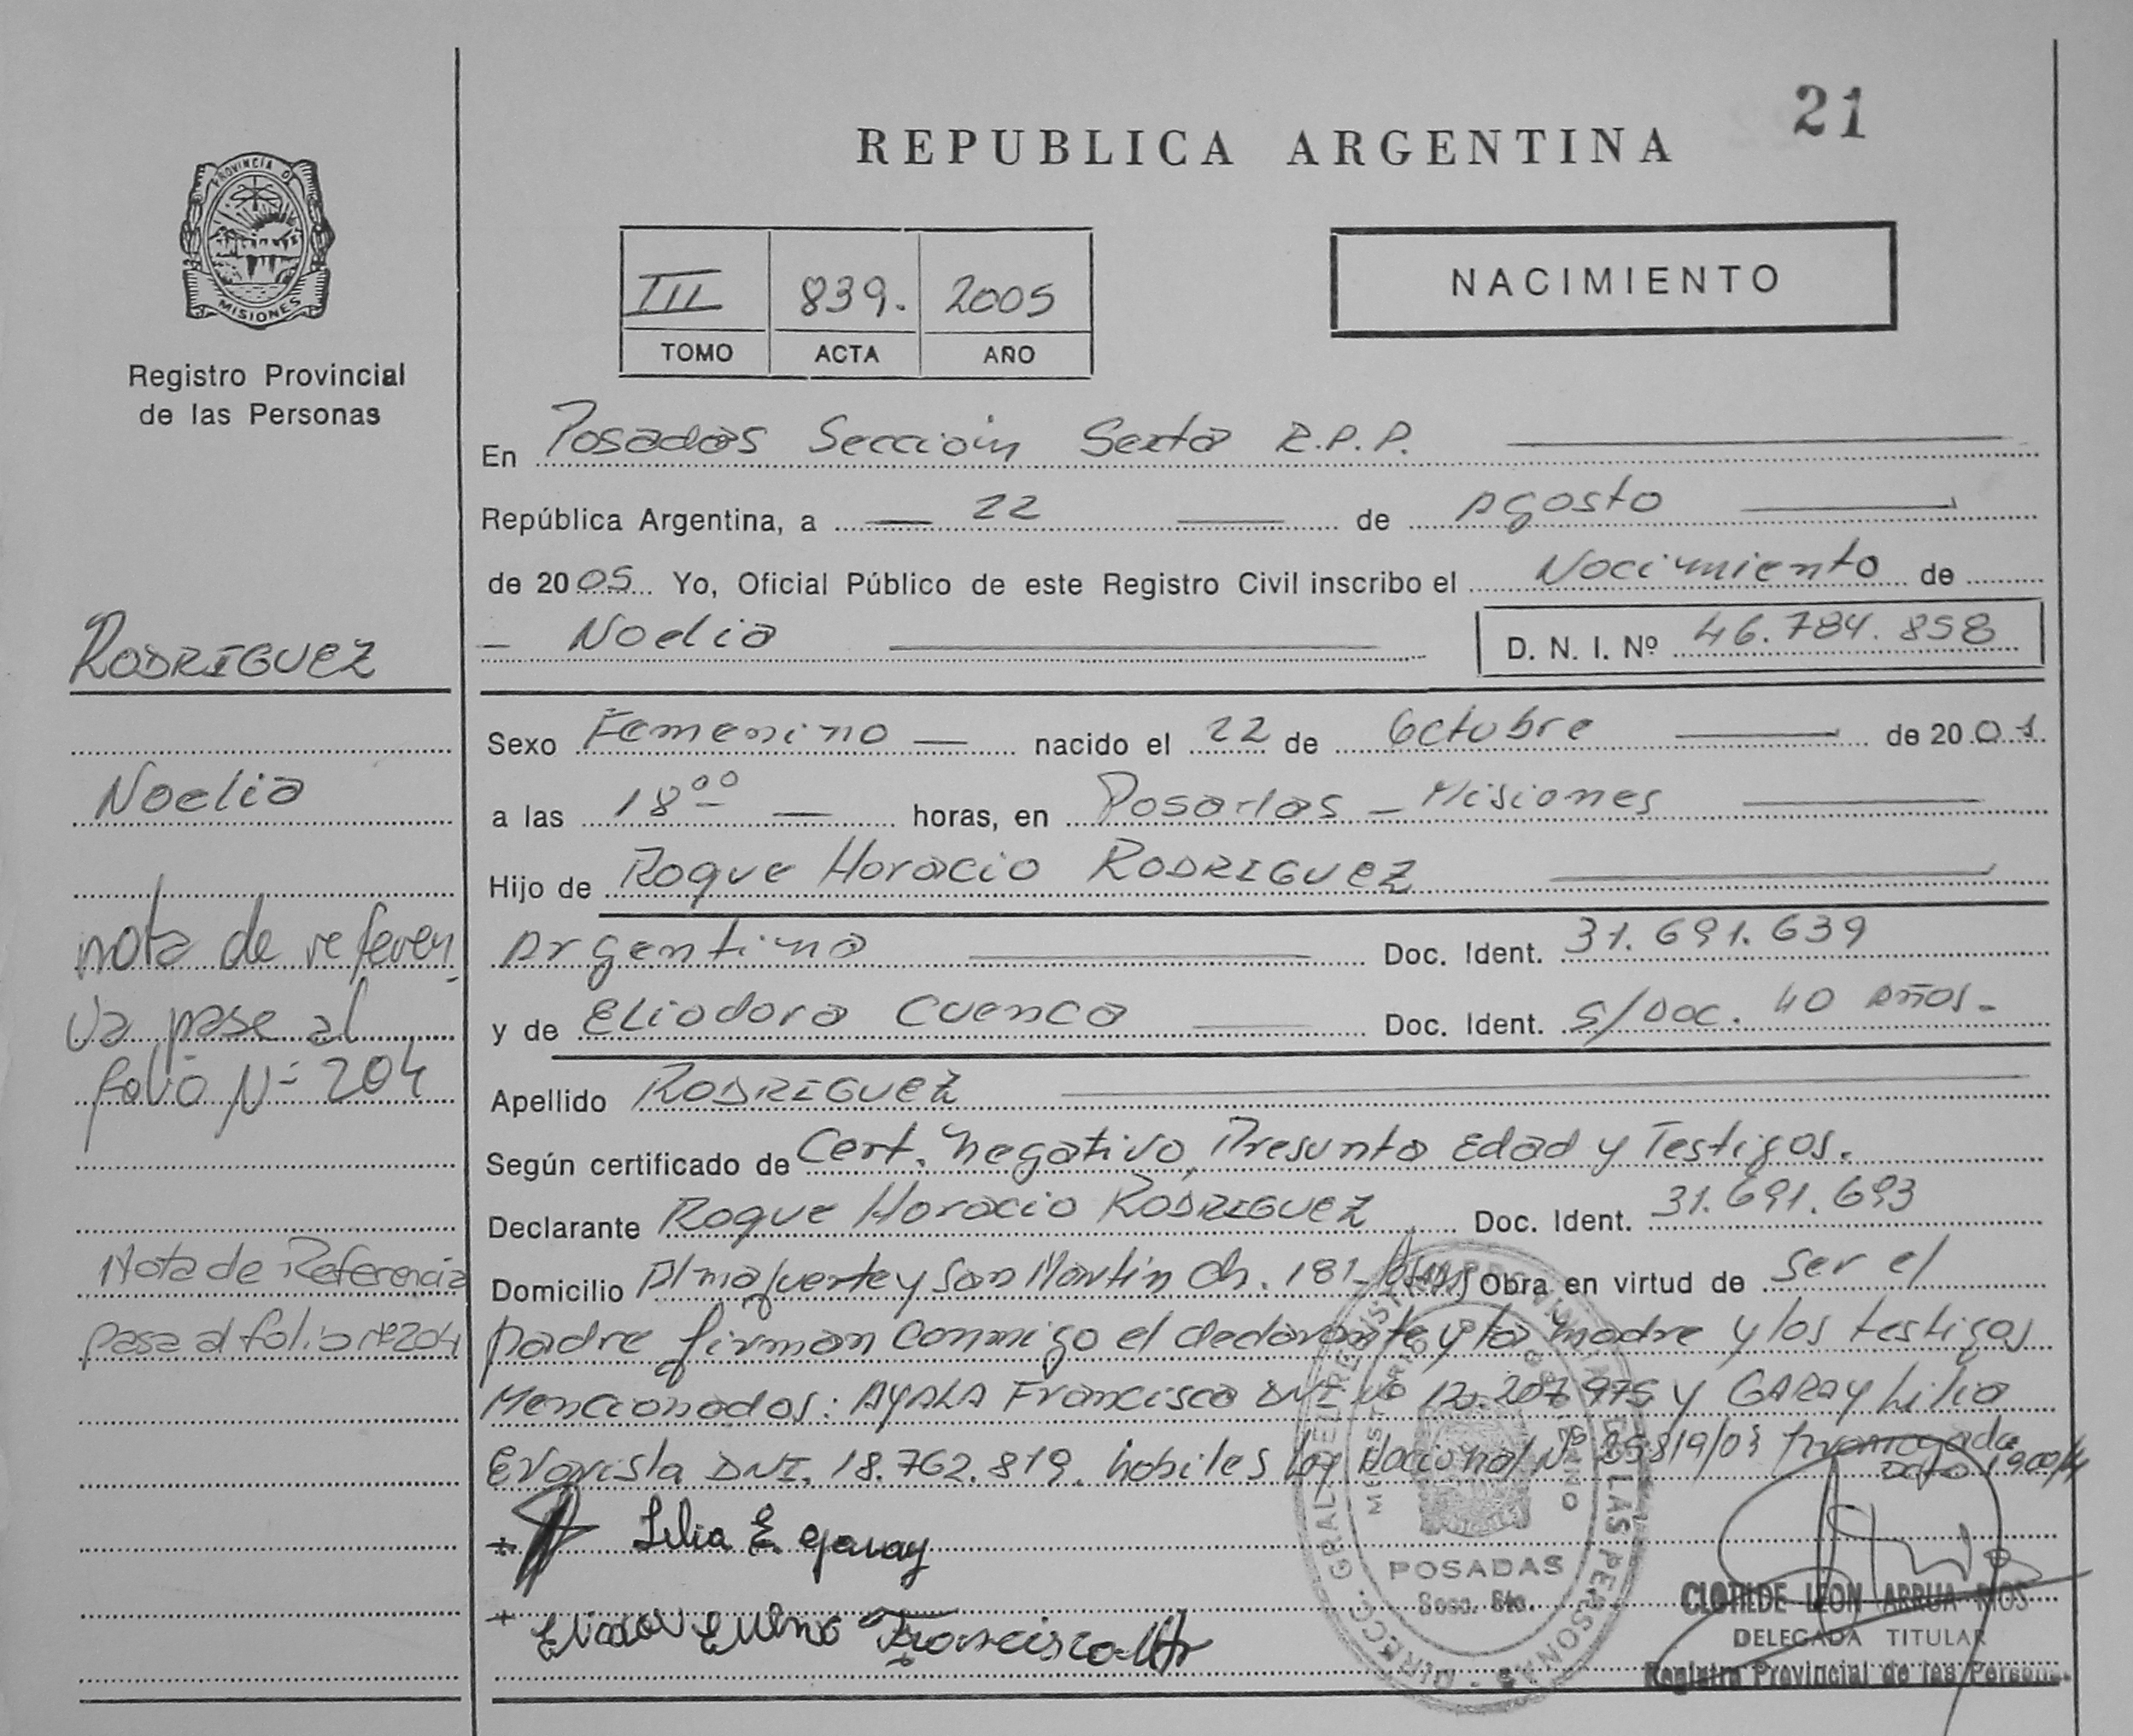 21
REPUBLICA ARGENTINA
PROVINCIA D
MISIONES
Registro Provincial
de las Personas
III 839. 2005
TOMO ACTA AÑO
NACIMIENTO
En Posadas Sección Sexta R.P.P.
República Argentina, a 22 de Agosto
de 2005 Yo, Oficial Público de este Registro Civil inscribo el Nacimiento de
Noelia D. N. I. Nº 46.784.858
RODRIGUEZ
Sexo Femenino nacido el 22 de Octubre de 2001
Noelia
a las 18 00 horas, en Posadas - Misiones
Hijo de Roque Horacio RODRIGUEZ
Argentino Doc. Ident. 31.691.639
y de Eliodora Cuenca Doc. Ident. S/Doc. 40 años.-
nota de referen
cia pase al
folio Nº 204
Apellido RODRIGUEZ
Según certificado de Cert. negativo, Presunta Edad y Testigos.
Declarante Roque Horacio RODRIGUEZ Doc. Ident. 31.691.693
Domicilio Almafuerte y San Martin Ch. 181 Obra en virtud de ser el
padre firman conmigo el declarante y la madre y los testigos
Mencionados: AYALA Francisco DNI Nº 12.207.975 y GARAY Lilia
Evarista DNI. 18.762.819. hobiles Ley Nacional Nº 25819/03 Prorrogada
Nota de Referencia
pasa al folio Nº 204
Lilia E. Garay
Francisco
POSADAS
Secc. 6ta.
DIRECC. GRAL. DEL REGISTRO PROVINCIAL DE LAS PERSONAS
CLOTILDE LEON ARRUA RIOS
DELEGADA TITULAR
Registro Provincial de las Personas